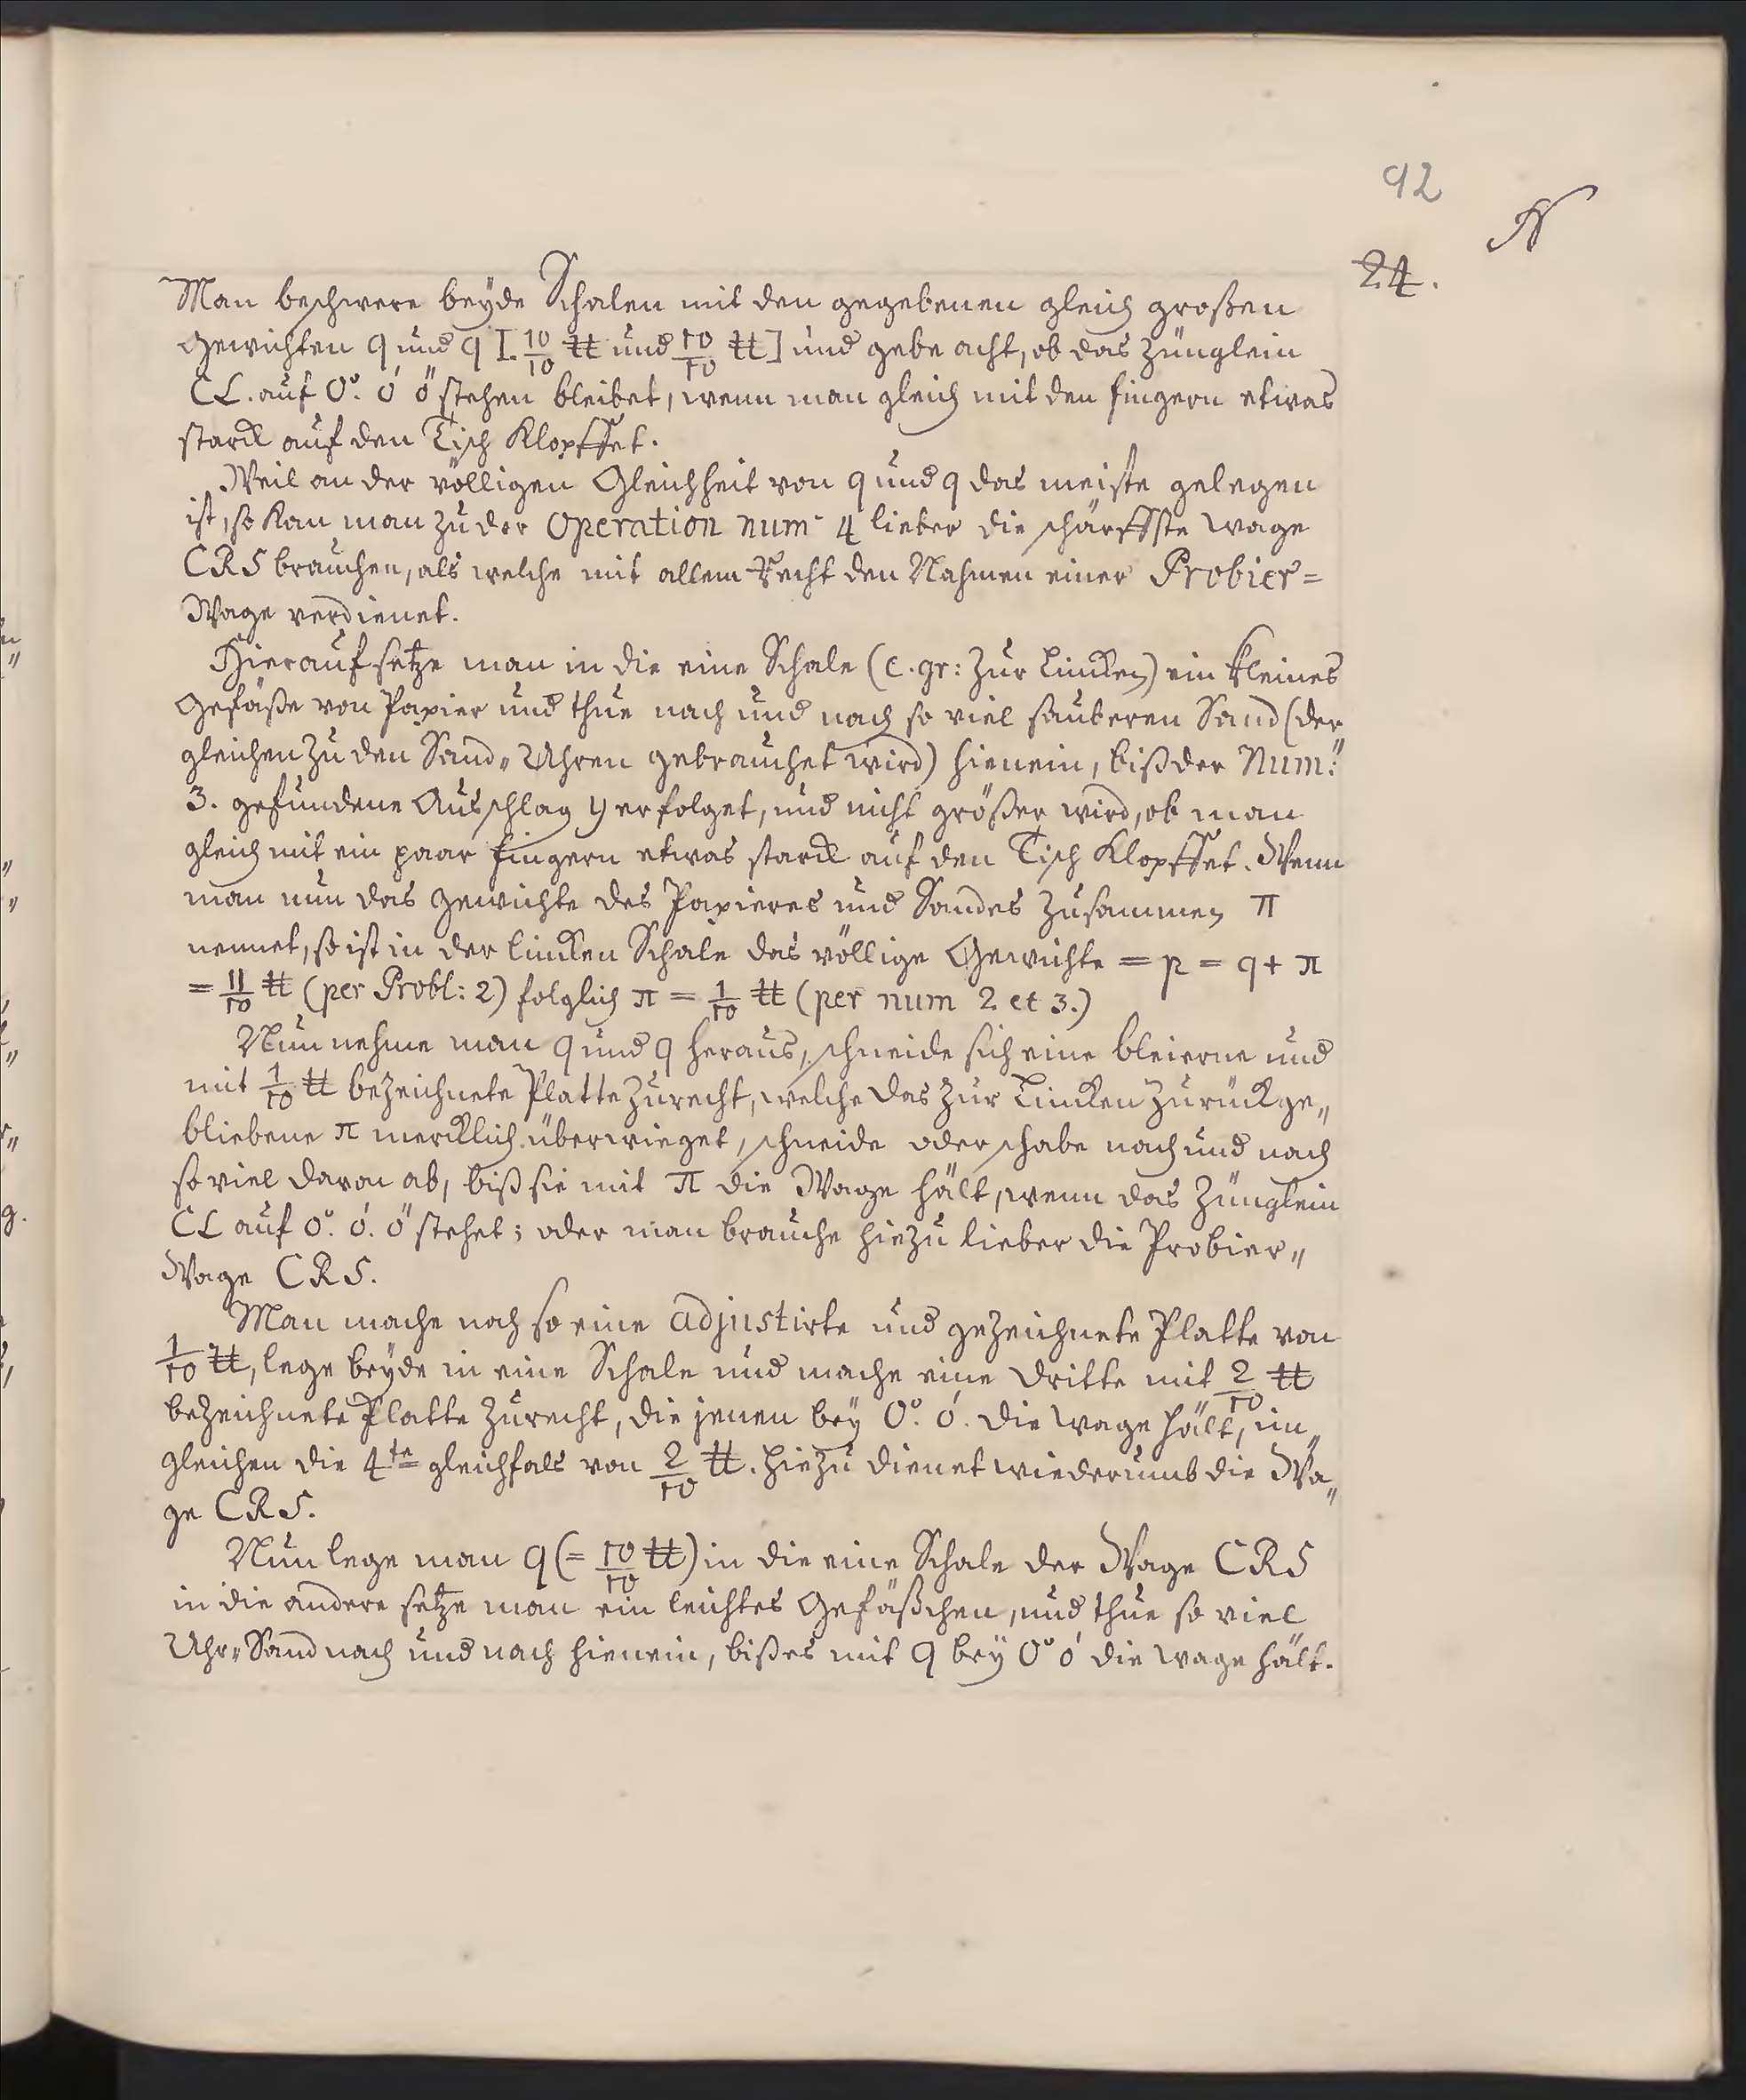 92
N
24.
Man beschwere beÿde Schalen mit den gegebenen gleich großen
Gewichten q und q [10/10 ℔ und 10/10 ℔] und gebe acht, ob das Zünglein
CL. auf 0°. 0' 0" stehen bleibet, wenn man gleich mit den fingern etwas
starck auf den Tisch Klopffet.
Weil an der völligen Gleichheit von q und q das meiste gelegen
ist, so kan man zu der Operation num. 4 lieber die schärffste Wage
CRS brauchen, als welche mit allem Recht den Nahmen einer Probier=
Wage verdienet.
Hierauf setze man in die eine Schale (e. gr: zur Lincken) ein kleines
Gefäße von Papier und thue nach und nach so viel sauberen Sand (der
gleichen zu den Sand„Uhren gebrauchet wird) hienein, biß der Num:
3. gefundene Ausschlag y erfolget, und nicht größer wird, ob man
gleich mit ein paar fingern etwas starck auf den Tisch Klopffet. Wenn
man nun das Gewichte des Papieres und Sandes zusammen π
nennet, so ist in der lincken Schale das völlige Gewichte = p = q + π
= 11/10 ℔ (per Probl: 2) folglich π = 1/10 ℔ (per num 2 et 3.)
Nun nehme man q und q heraus, schneide sich eine bleierne und
mit 1/10 ℔ bezeichnete Platte zurecht, welche das zur Lincken zurückge„
bliebene π mercklich überwieget, schneide oder schabe nach und nach
so viel davon ab, biß sie mit π die Wage hält, wenn das Zünglein
CL auf 0°. 0'. 0" stehet; oder man brauche hiezu lieber die Probier„
Wage CRS.
Man mache noch so eine adjustirte und gezeichnete Platte von
1/10 ℔, lege beÿde in eine Schale und mache eine dritte mit 2/10 ℔
bezeichnete Platte zurecht, die jenen beÿ 0°. 0'. die Wage hält, im„
gleichen die 4te gleichfals von 2/10 ℔. Hiezu dienet wiederumb die Wa„
ge CRS.
Nun lege man q (= 10/10 ℔) in die eine Schale der Wage CRS
in die andere setze man ein leichtes Gefäßchen, und thue so viel
Uhr„Sand nach und nach hienein, biß es mit q beÿ 0° 0' die Wage hält.